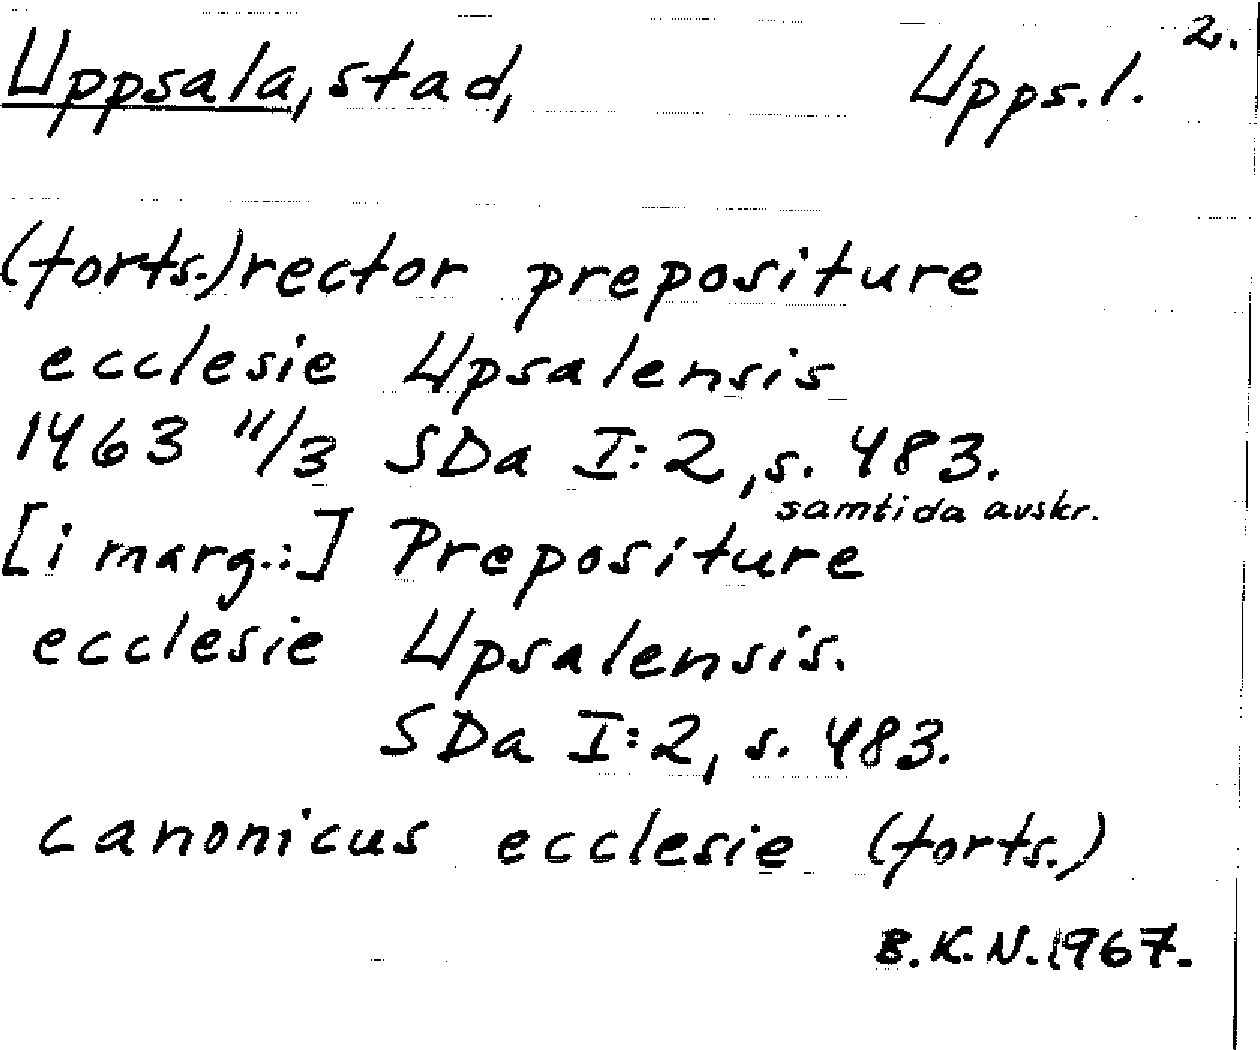 2.
Uppsala, stad, Upps.l.
(forts.) rector prepositure
ecclesie Upsalensis
1463 11/3 SDa I:2, s. 483.
samtida avskr.
[i marg.:] Prepositure
ecclesie Upsalensis.
SDa I:2, s. 483.
canonicus ecclesie (forts.)
B.K.N. 1967.